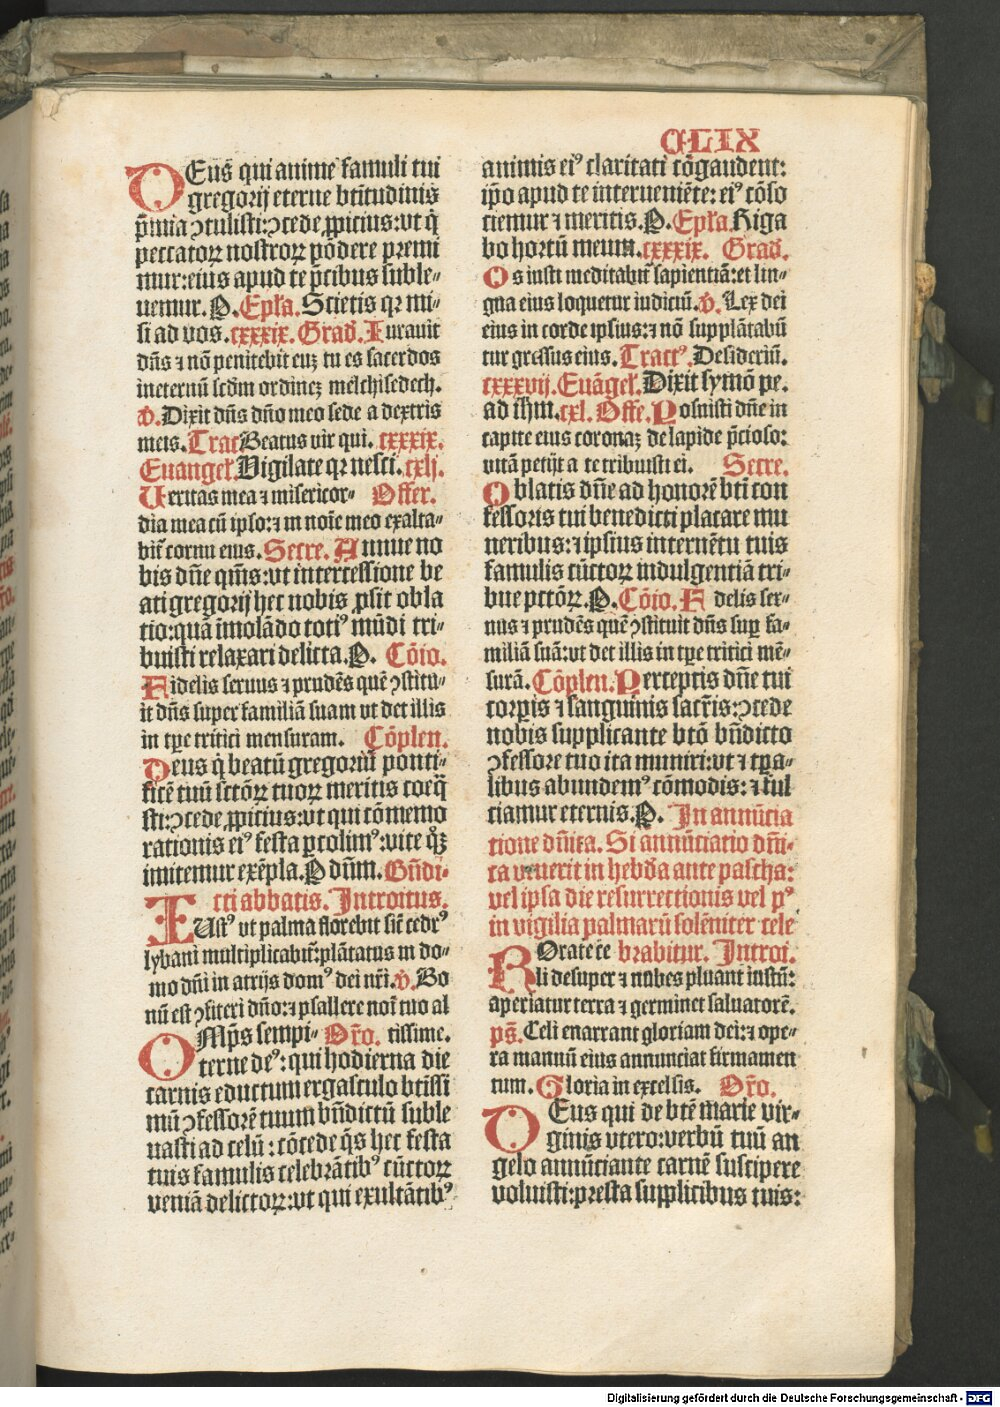 CLIX
DEus qui anime famuli tui
gregorij eterne btitudinis
p̄mia ꝯtulisti: ꝯcede ꝓpicius: vt q̄
peccatoꝝ nostroꝝ põdere premi
mur: eius apud te p̄cibus suble-
uemur. P. Epła. Scietis qꝛ mi-
si ad vos. cxxxix. Grad̄. Iurauit
dñs ⁊ nõ penitebit eũ tu es sacerdos
ineternũ scd̄m ordineꝫ melchisedech.
V̄. Dixit dñs dño meo sede a dextris
meis. Trac Beatus vir qui. cxxxix.
Euangeł. Vigilate qꝛ nesci. cxlj.
Veritas mea ⁊ misericor- Offer.
dia mea cũ ipso: ⁊ in noīe meo exalta-
bit̄ cornu eius. Secre. Annue no
bis dñe q̄ms: vt intercessione be
ati gregorij hec nobis ꝓsit obla
tio: quã ĩmolãdo totiꝰ mũdi tri-
buisti relaxari delicta. P. Cõio.
Fidelis seruus ⁊ prudẽs quẽ ꝯstitu-
it dñs super familiã suam vt det illis
in tp̄e tritici mensuram. Cõplen.
Deus q̄ beatũ gregoriũ ponti-
ficẽ tuũ sctõꝝ tuoꝝ meritis coeq̄
sti: ꝯcede ꝓpicius: vt qui cõmemo
rationis eiꝰ festa ꝑcolimꝰ: vite q̊ꝫ
imitemur exẽpla. P dñm. Bñdi-
cti abbatis. Introitus.
IUstꝰ vt palma florebit sic̄ cedrꝰ
lybani multiplicabit̄: plãtatus in do-
mo dñi in atrijs domꝰ dei nr̄i. V̄. Bo
nũ est ꝯfiteri dño: ⁊ psallere noĩ tuo al
OMp̄s sempi- Or̄o. tissime.
terne deꝰ: qui hodierna die
carnis eductum ergasculo btissi
mũ ꝯfessorẽ tuum bñdictũ suble
uasti ad celũ: cõcede q̄s hec festa
tuis famulis celebrãtibꝰ cũctoꝝ
veniã delictoꝝ: vt qui exultãtibꝰ
animis eiꝰ claritati cõgaudent:
ip̄o apud te interueniẽte: eiꝰ cõso
ciemur ⁊ meritis. P. Epła. Riga
bo hortũ meum. cxxxix. Grad̄.
Os iusti meditabit̄ sapientiã: et lin-
gua eius loquetur iudiciũ. V̄. Lex dei
eius in corde ipsius: ⁊ nõ supplãtabũ
tur gressus eius. Tractꝰ. Desideriũ.
cxxxvij. Euãgeł. Dixit symõ pe.
ad ih̃m. cxl. Offe. Posuisti dñe in
capite eius coronaꝫ de lapide p̄cioso:
vitã petijt a te tribuisti ei. Secre.
Oblatis dñe ad honorẽ bti con
fessoris tui benedicti placare mu
neribus: ⁊ ipsius interuẽtu tuis
famulis cũctoꝝ indulgentiã tri-
bue pctõꝝ. P. Cõio. Fidelis ser-
uus ⁊ prudẽs quẽ ꝯstituit dñs suꝑ fa-
miliã suã: vt det illis in tp̄e tritici mẽ-
surã. Cõplen. Perceptis dñe tui
corꝑis ⁊ sanguinis sacr̄is: ꝯcede
nobis supplicante btõ bñdicto
ꝯfessore tuo ita muniri: vt ⁊ tp̄a-
libus abundemꝰ cõmodis: ⁊ ful
ciamur eternis. P. In annũcia
tione dñica. Si annũciatio dñi-
ca venerit in hebda ante pascha:
vel ipsa die resurrectionis vel pꝰ
in vigilia palmarũ solẽniter cele
ROrate ce brabitur. Introi.
li desuper ⁊ nubes pluant iustũ:
aperiatur terra ⁊ germinet saluatorẽ.
ps̄. Celi enarrant gloriam dei: ⁊ ope-
ra manuũ eius annunciat firmamen
tum. Gloria in excelsis. Or̄o.
DEus qui de btẽ marie vir-
ginis vtero: verbũ tuũ an
gelo annũciante carnẽ suscipere
voluisti: presta supplicibus tuis:
Digitalisierung gefördert durch die Deutsche Forschungsgemeinschaft - DFG